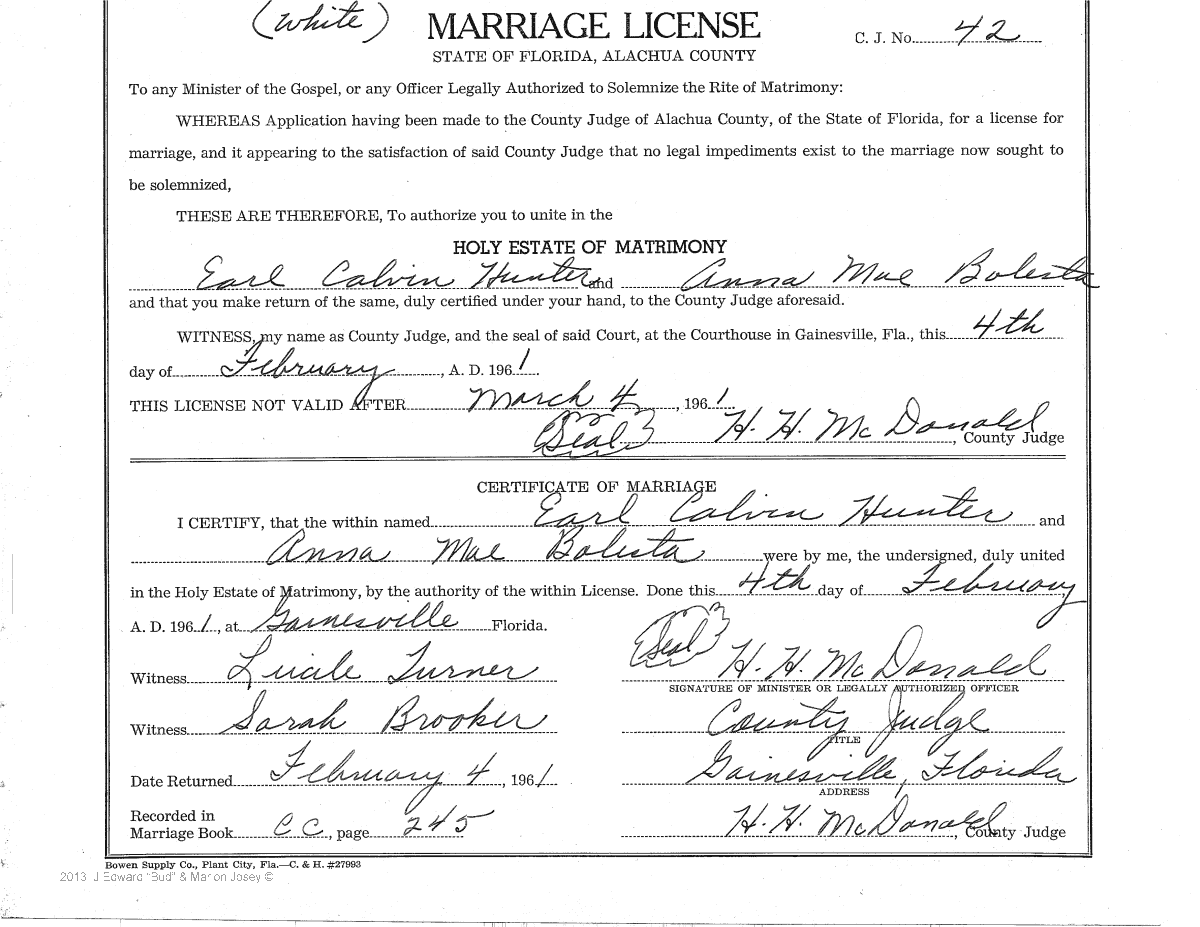 (White)
MARRIAGE LICENSE
C. J. No. 42
STATE OF FLORIDA, ALACHUA COUNTY
To any Minister of the Gospel, or any Officer Legally Authorized to Solemnize the Rite of Matrimony:
WHEREAS Application having been made to the County Judge of Alachua County, of the State of Florida, for a license for
marriage, and it appearing to the satisfaction of said County Judge that no legal impediments exist to the marriage now sought to
be solemnized,
THESE ARE THEREFORE, To authorize you to unite in the
HOLY ESTATE OF MATRIMONY
Earl Calvin Hunter and Anna Mae Bolesta
and that you make return of the same, duly certified under your hand, to the County Judge aforesaid.
WITNESS, my name as County Judge, and the seal of said Court, at the Courthouse in Gainesville, Fla., this 4th
day of February, A. D. 1961.
THIS LICENSE NOT VALID AFTER March 4, 1961.
(Seal) H. H. McDonald, County Judge
CERTIFICATE OF MARRIAGE
I CERTIFY, that the within named Earl Calvin Hunter and
Anna Mae Bolesta were by me, the undersigned, duly united
in the Holy Estate of Matrimony, by the authority of the within License. Done this 4th day of February
A. D. 1961, at Gainesville Florida.
(Seal) H. H. McDonald
Witness Lucile Turner
SIGNATURE OF MINISTER OR LEGALLY AUTHORIZED OFFICER
Witness Sarah Brooker
County Judge
TITLE
Date Returned February 4, 1961
Gainesville, Florida
ADDRESS
Recorded in
Marriage Book CC, page 245
H. H. McDonald, County Judge
Bowen Supply Co., Plant City, Fla.—C. & H. #27993
2013 J Edward "Bud" & Marion Josey ©